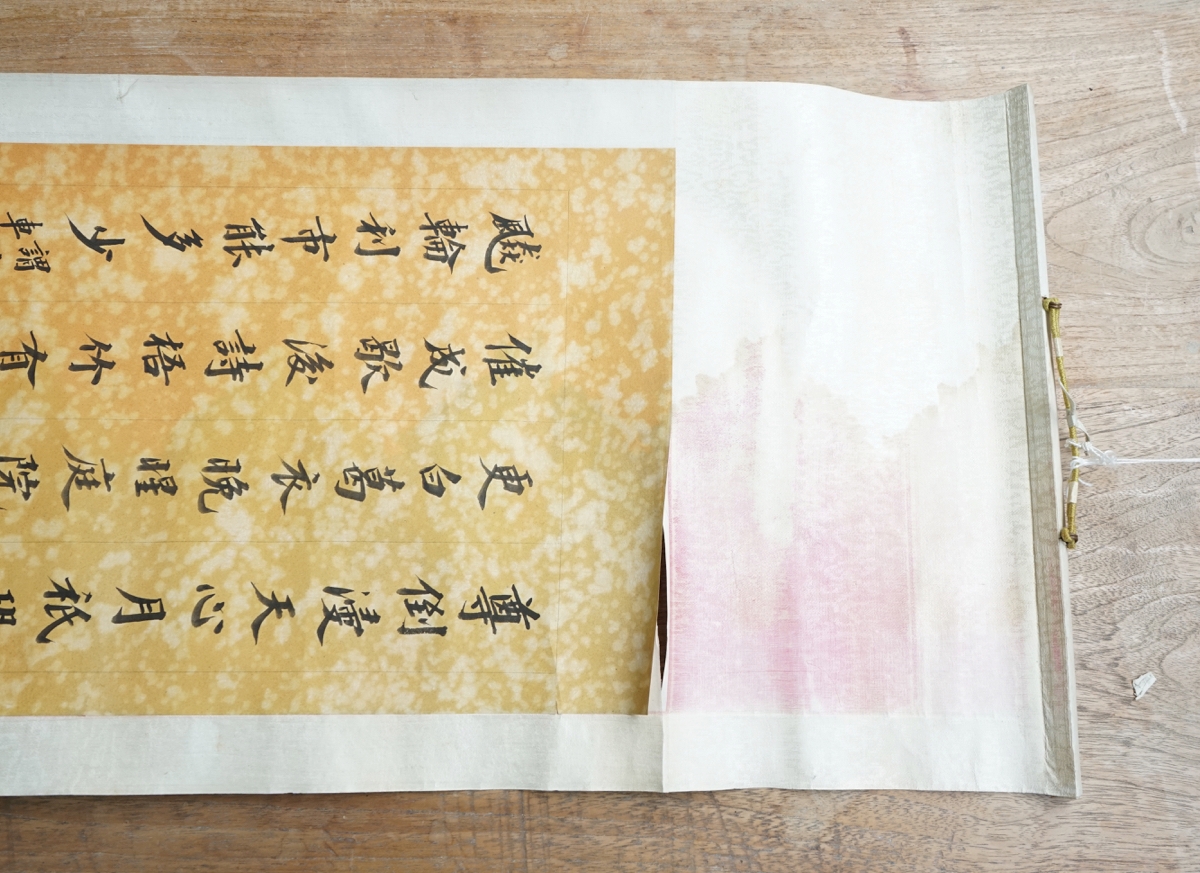 尊倒天心月祇
更白葛衣晚暒庭院
催成歌後詩梧竹有
飇輪利市能多少
謂
車